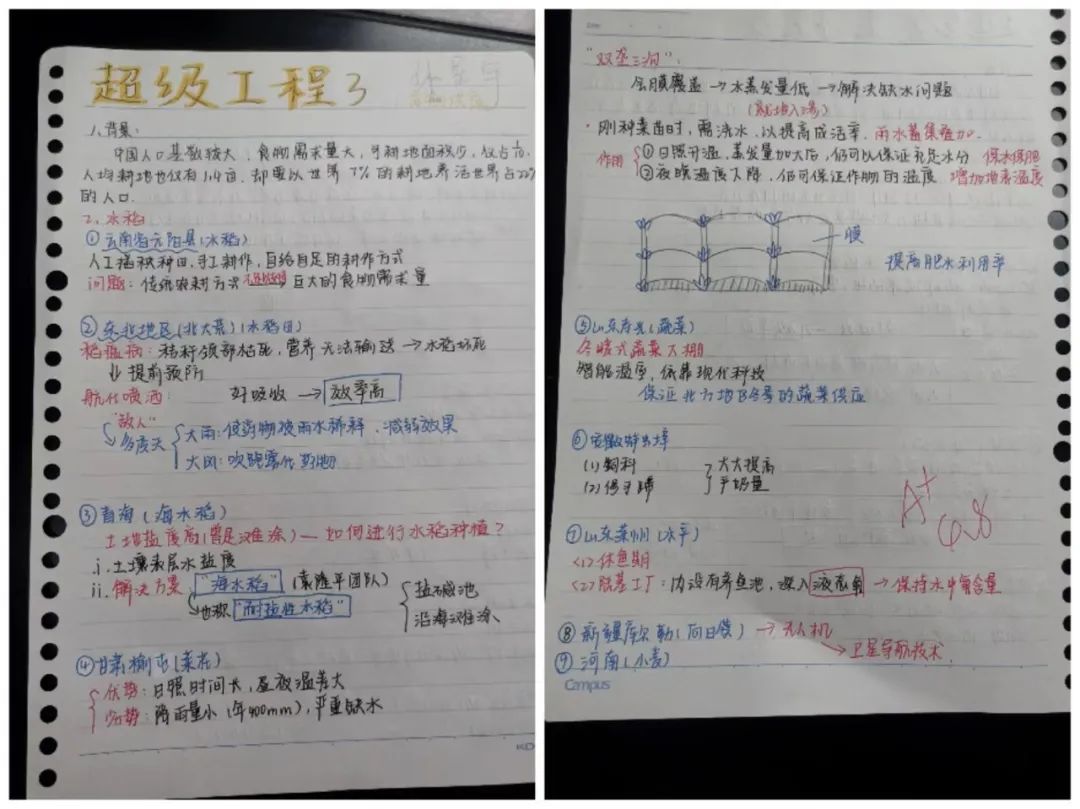 超级工程3
1.背景:
中国人口基数较大,食物需求量大,可耕地面积少,仅占1/10.
人均耕地也仅有1.4亩.却要以世界7%的耕地养活世界占22%
的人口.
2.水稻
①云南省元阳县(水稻)
人工插秧种田,手工耕作,自给自足的耕作方式
问题:传统农耕方式 巨大的食物需求量
②东北地区(北大荒)(水稻田)
稻瘟病:秸秆颈部枯死,营养无法输送→水稻坏死
↓提前预防
航化喷洒: 好吸收→效率高
"敌人"
多度天
大雨:使药物被雨水稀释,减弱效果
大风:吹跑雾化药物
③青海(海水稻)
土地盐度高(曾是滩涂)—如何进行水稻种植?
i.土壤表层水盐度
ii.解决方案:"海水稻"(袁隆平团队)
也称"耐盐性水稻"
盐碱池
沿海滩涂
④甘肃榆屯(菜花)
优势:日照时间长,昼夜温差大
劣势:降雨量小(年400mm),严重缺水
"双垄三沟":
全膜覆盖→水蒸发量低→解决缺水问题
·刚种菜苗时,需浇水,以提高成活率.雨水蓄集叠加.
作用
①日照升温,蒸发量加大后,仍可以保证充足水分 保水保肥
②夜晚温度下降,仍可保证作物的温度.增加地表温度
膜
提高肥水利用率
⑤山东寿光(蔬菜)
冬暖式蔬菜大棚
智能温室,依靠现代科技
保证北方地区冬季的蔬菜供应
⑥安徽蚌埠
(1)饲料
(2)修牛蹄
大大提高
产奶量
A+
⑦山东莱州(水产)
<1>休鱼期
<2>陆基工厂:内设有养鱼池,深入液态氧→保持水中氧含量
⑧新疆库尔勒(向日葵)→无人机
→卫星导航技术.
⑨河南(小麦)
Campus